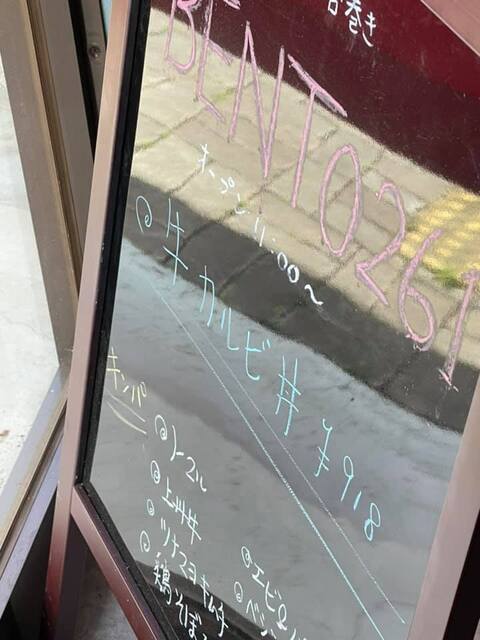 巻き
BENTO261
オープン 11:00〜
◎牛カルビ丼 ¥918
キンパ
◎ノーマル
◎上州牛
◎ツナマヨキムチ
◎鶏そぼろ
◎エビ
◎ベジ